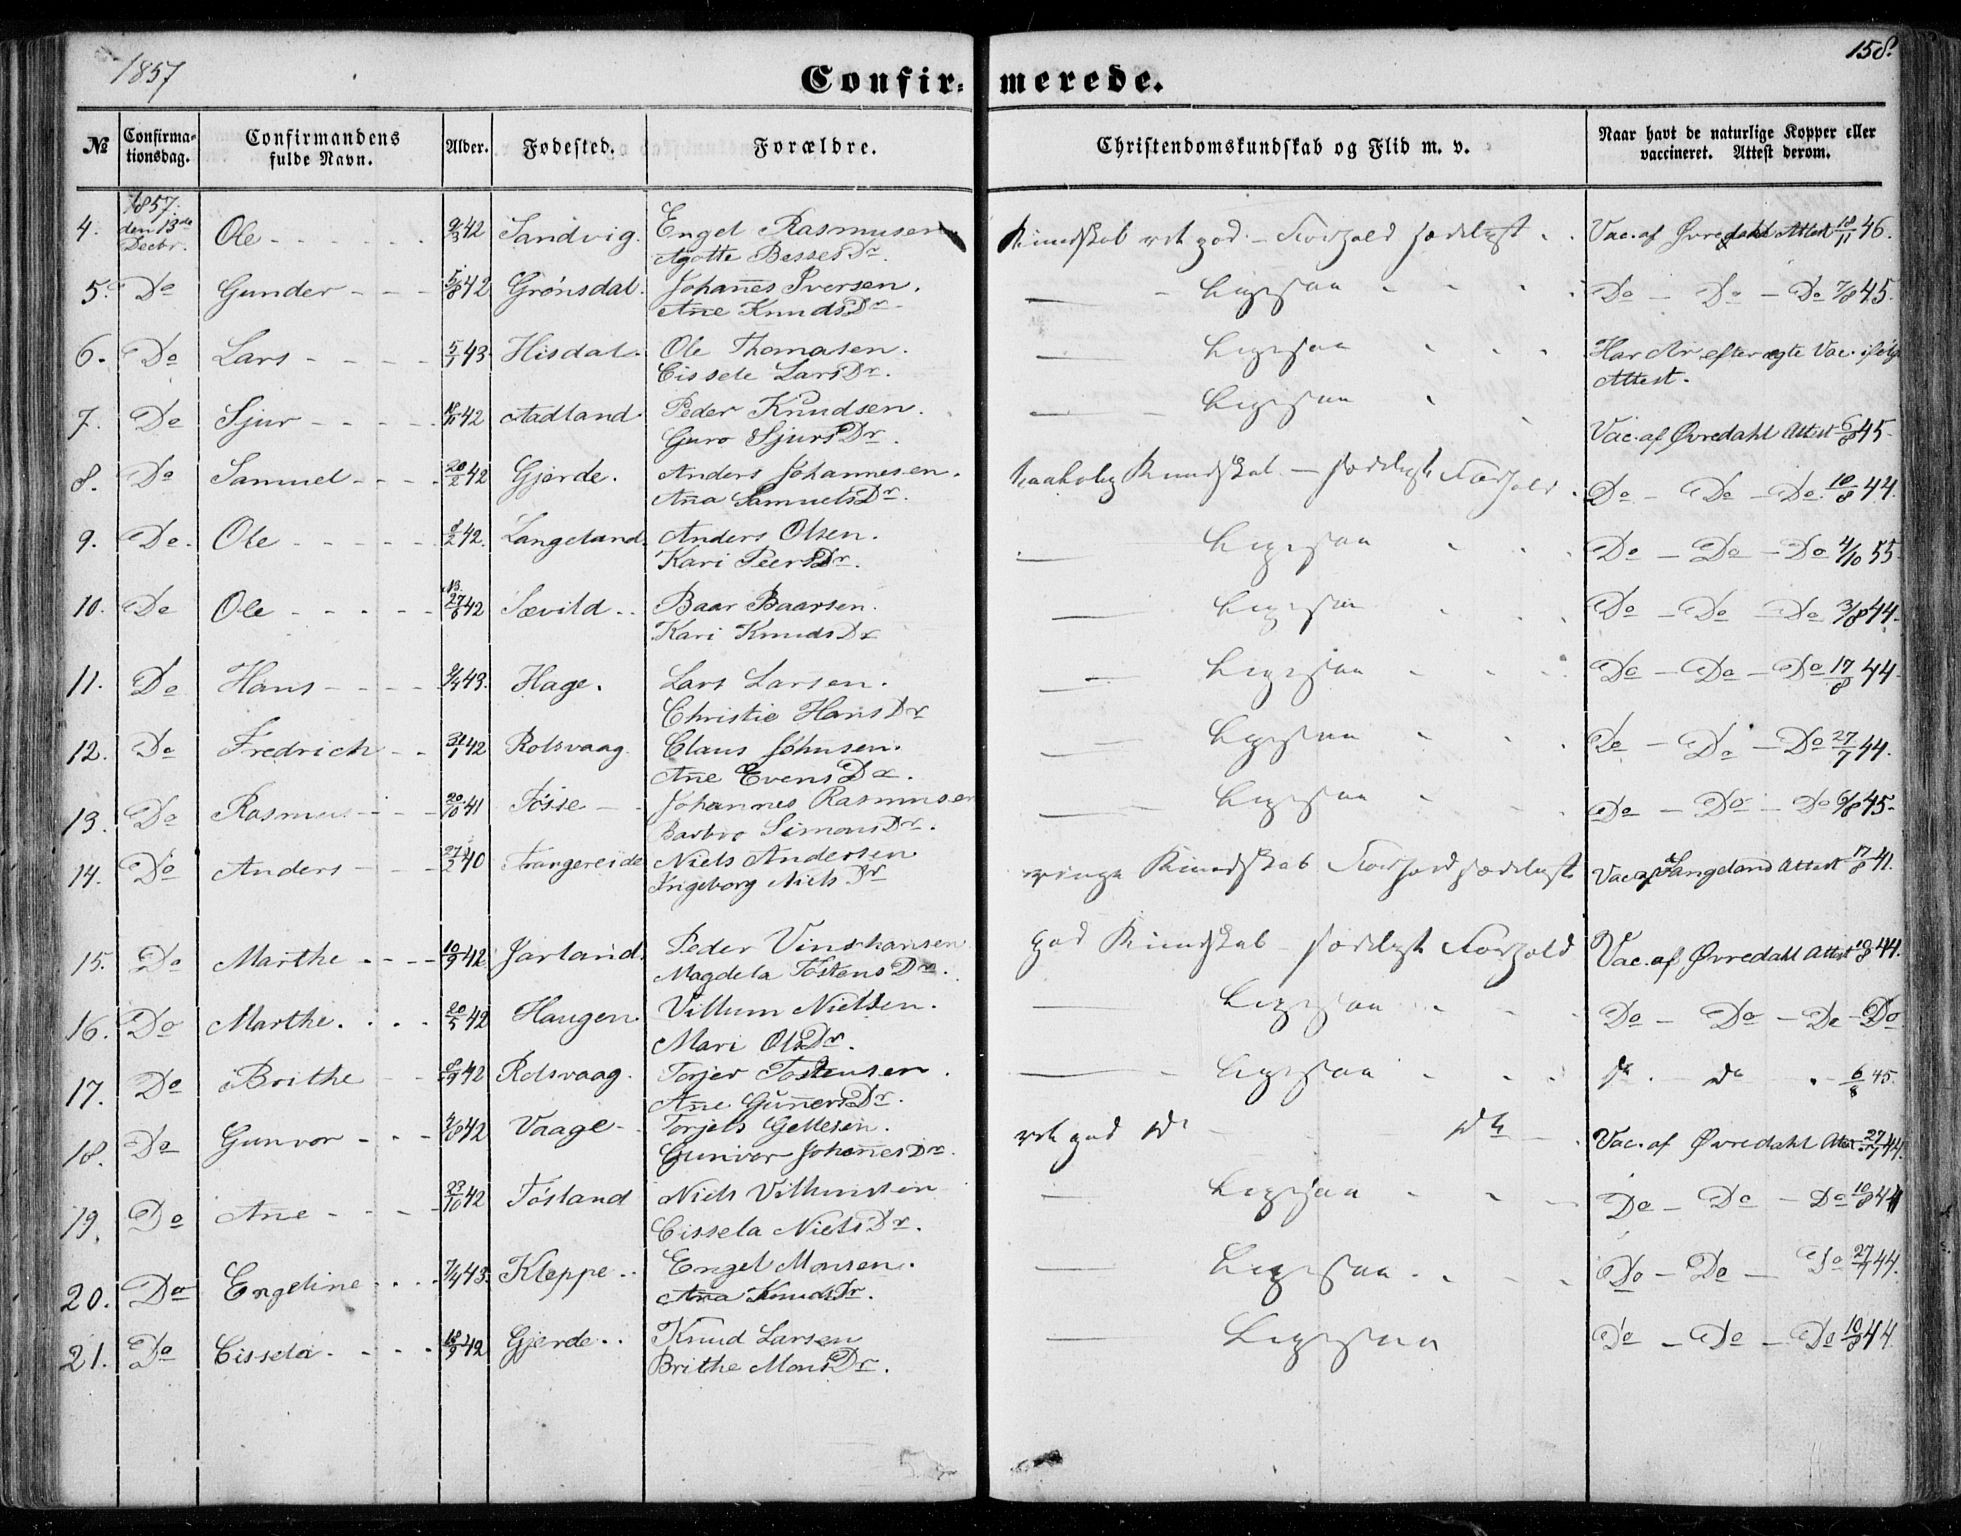 1857
158.
Confir= merede.
No Confirmationsdag. Confirmandens fulde Navn. Alder. Fødested. Forældre. Christendomskundskab og Flid m. v. Naar havt de naturlige Kopper eller vaccineret. Attest derom.
4. 1857. den 13de Decbr. Ole 9/3 42 Sandvig. Engel Rasmusen Kundskab godt Forhold sædeligt Vac. af Øvredahl Attest 18/11 46.
Agotte Besses Dr.
5. Do Gunder 5/8 42 Grønsdal. Johañes Iversen. Ligesaa Do - Do - Do 7/8 45.
Añe Knuds Dr
6. Do Lars 5/1 43 Hisdal. Ole Thomasen. Ligesaa Har Ar efter ægte Vac. ifølge
Cissele Lars Dr. Attest.
7. Do Sjur 42 Aadland Peder Knudsen. Ligesaa Vac. af Øvredahl Attest 6/8 45
Guro Sjurs Dr.
8. Do Samuel 20/2 42 Gjerde. Anders Johannesen. Kundskab - sædeligt Forhold. Do - Do - Do. 10/8 44.
Aña Samuels Dr.
9. Do. Ole 42. Langeland. Anders Olsen. Ligesaa Do - Do - Do 4/10 55
Kari Peers Dr.
10. Do Ole 42 Sævild Baar Baarsen. Ligesaa Do - Do - Do 3/8 44.
Kari Knuds Dr
11. Do Hans 43. Hage. Lars Larsen. Ligesaa Do - Do - Do 17/8 44
Christie Hans Dr
12. Do Fredrich 31/1 42 Rolsvaag. Claus Johnsen. Ligesaa Do - Do - Do 27/7 44.
Añe Evens Dr.
13. Do Rasmus 20/10 41 Tøsse Johannes Rasmusen Ligesaa Do - Do - Do 6/8 45.
Barbro Simons Dr.
14. Do Anders 27/2 40 Trangereide Niels Andersen ringe Kundskab Forhold sædeligt Vac. af Langeland Attest 17/8 41.
Ingeborg Niels Dr
15. Do Marthe 10/9 42 Jarland. Peder Vinshansen god Kundskab - sædeligt Forhold Vac. af Øvredahl Attest 10/8 44.
Magdela Tostens Dr.
16. Do Marthe. 20/5 42 Haugen. Villum Nielsen. Ligesaa Do - Do - Do - Do
Mari Ols Dr.
17. Do Brithe 42 Rolsvaag. Torjer Tostensen. Ligesaa do. do. 6/8 45.
Añe Guñers Dr.
18. Do Gunvor 42 Vaage Torjels Gellesen. god do do Vac. af Øvredahl Attest 27/7 44.
Gunvor Johañes Dr.
19. Do Añe 23/10 42 Tøsland Niels Villumsen Ligesaa Do - Do - Do 10/8 44
Cissela Niels Dr.
20. Do Engeline 7/4 43. Kleppe Engel Monsen. Ligesaa Do - Do - Do 27/7 44.
Aña Knuds Dr.
21. Do Cissela. 18/9 42 Gjerde Knud Larsen Ligesaa Do - Do - Do 10/8 44
Brithe Mons Dr.